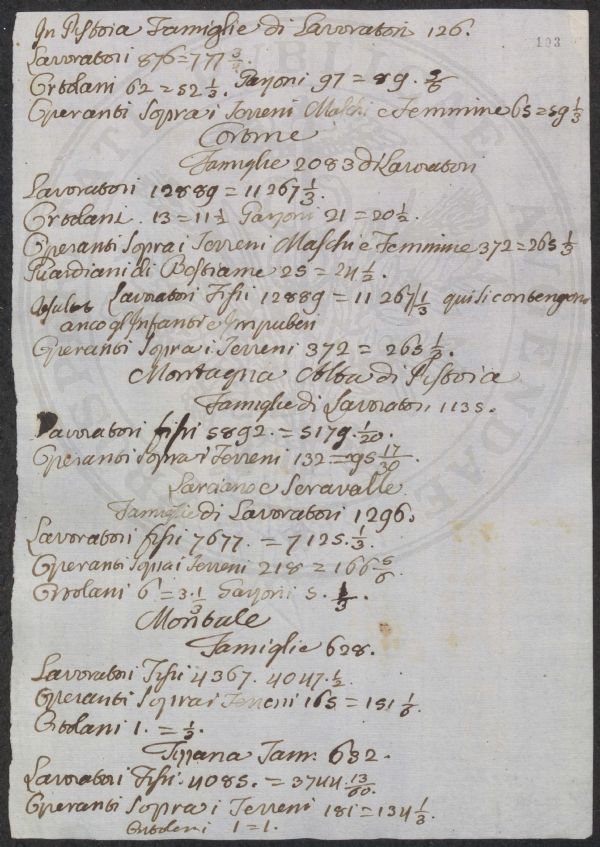 193
In Pistoia Famiglie di Lavoratori 126.
Lavoratori 876=777
Ortolani 62=52 1/3. Garzoni 97=89. 5/6
Operanti Sopra i Terreni Maschi e Femmine 65=59 1/3
Cortine
Famiglie 2083 di Lavoratori
Lavoratori 12889=11267 1/3.
Ortolani. 13=11 1/2 Garzoni 21=20 1/2.
Operanti Sopra i Terreni Maschi e Femmine 372=265 1/3
Guardiani di Bestiame 25=24 1/2.
Lavoratori Fissi 12889=11267 1/3 qui si contengono
anco gl'Infanti e Impuberi
Operanti Sopra i Terreni 372=265 1/3.
Montagna Alta di Pistoia
Famiglie di Lavoratori 1135.
Lavoratori fissi 5892.=5179. 1/20.
Operanti Sopra i Terreni 132=95 17/30.
Larciano e Seravalle
Famiglie di Lavoratori 1296.
Lavoratori fissi 7677.=7125. 1/3.
Operanti Sopra i Terreni 218=166 5/6.
Ortolani 6=3. 1/3 Garzoni 5. 1/3.
Montale
Famiglie 628.
Lavoratori Fissi 4367. 4047. 1/2.
Operanti Sopra i Terreni 165=151 1/6.
Ortolani 1.=1/3.
Tizzana Fam: 632.
Lavoratori Fissi. 4085.=3744. 13/60.
Operanti Sopra i Terreni 181=134 1/3.
Ortolani 1=1.